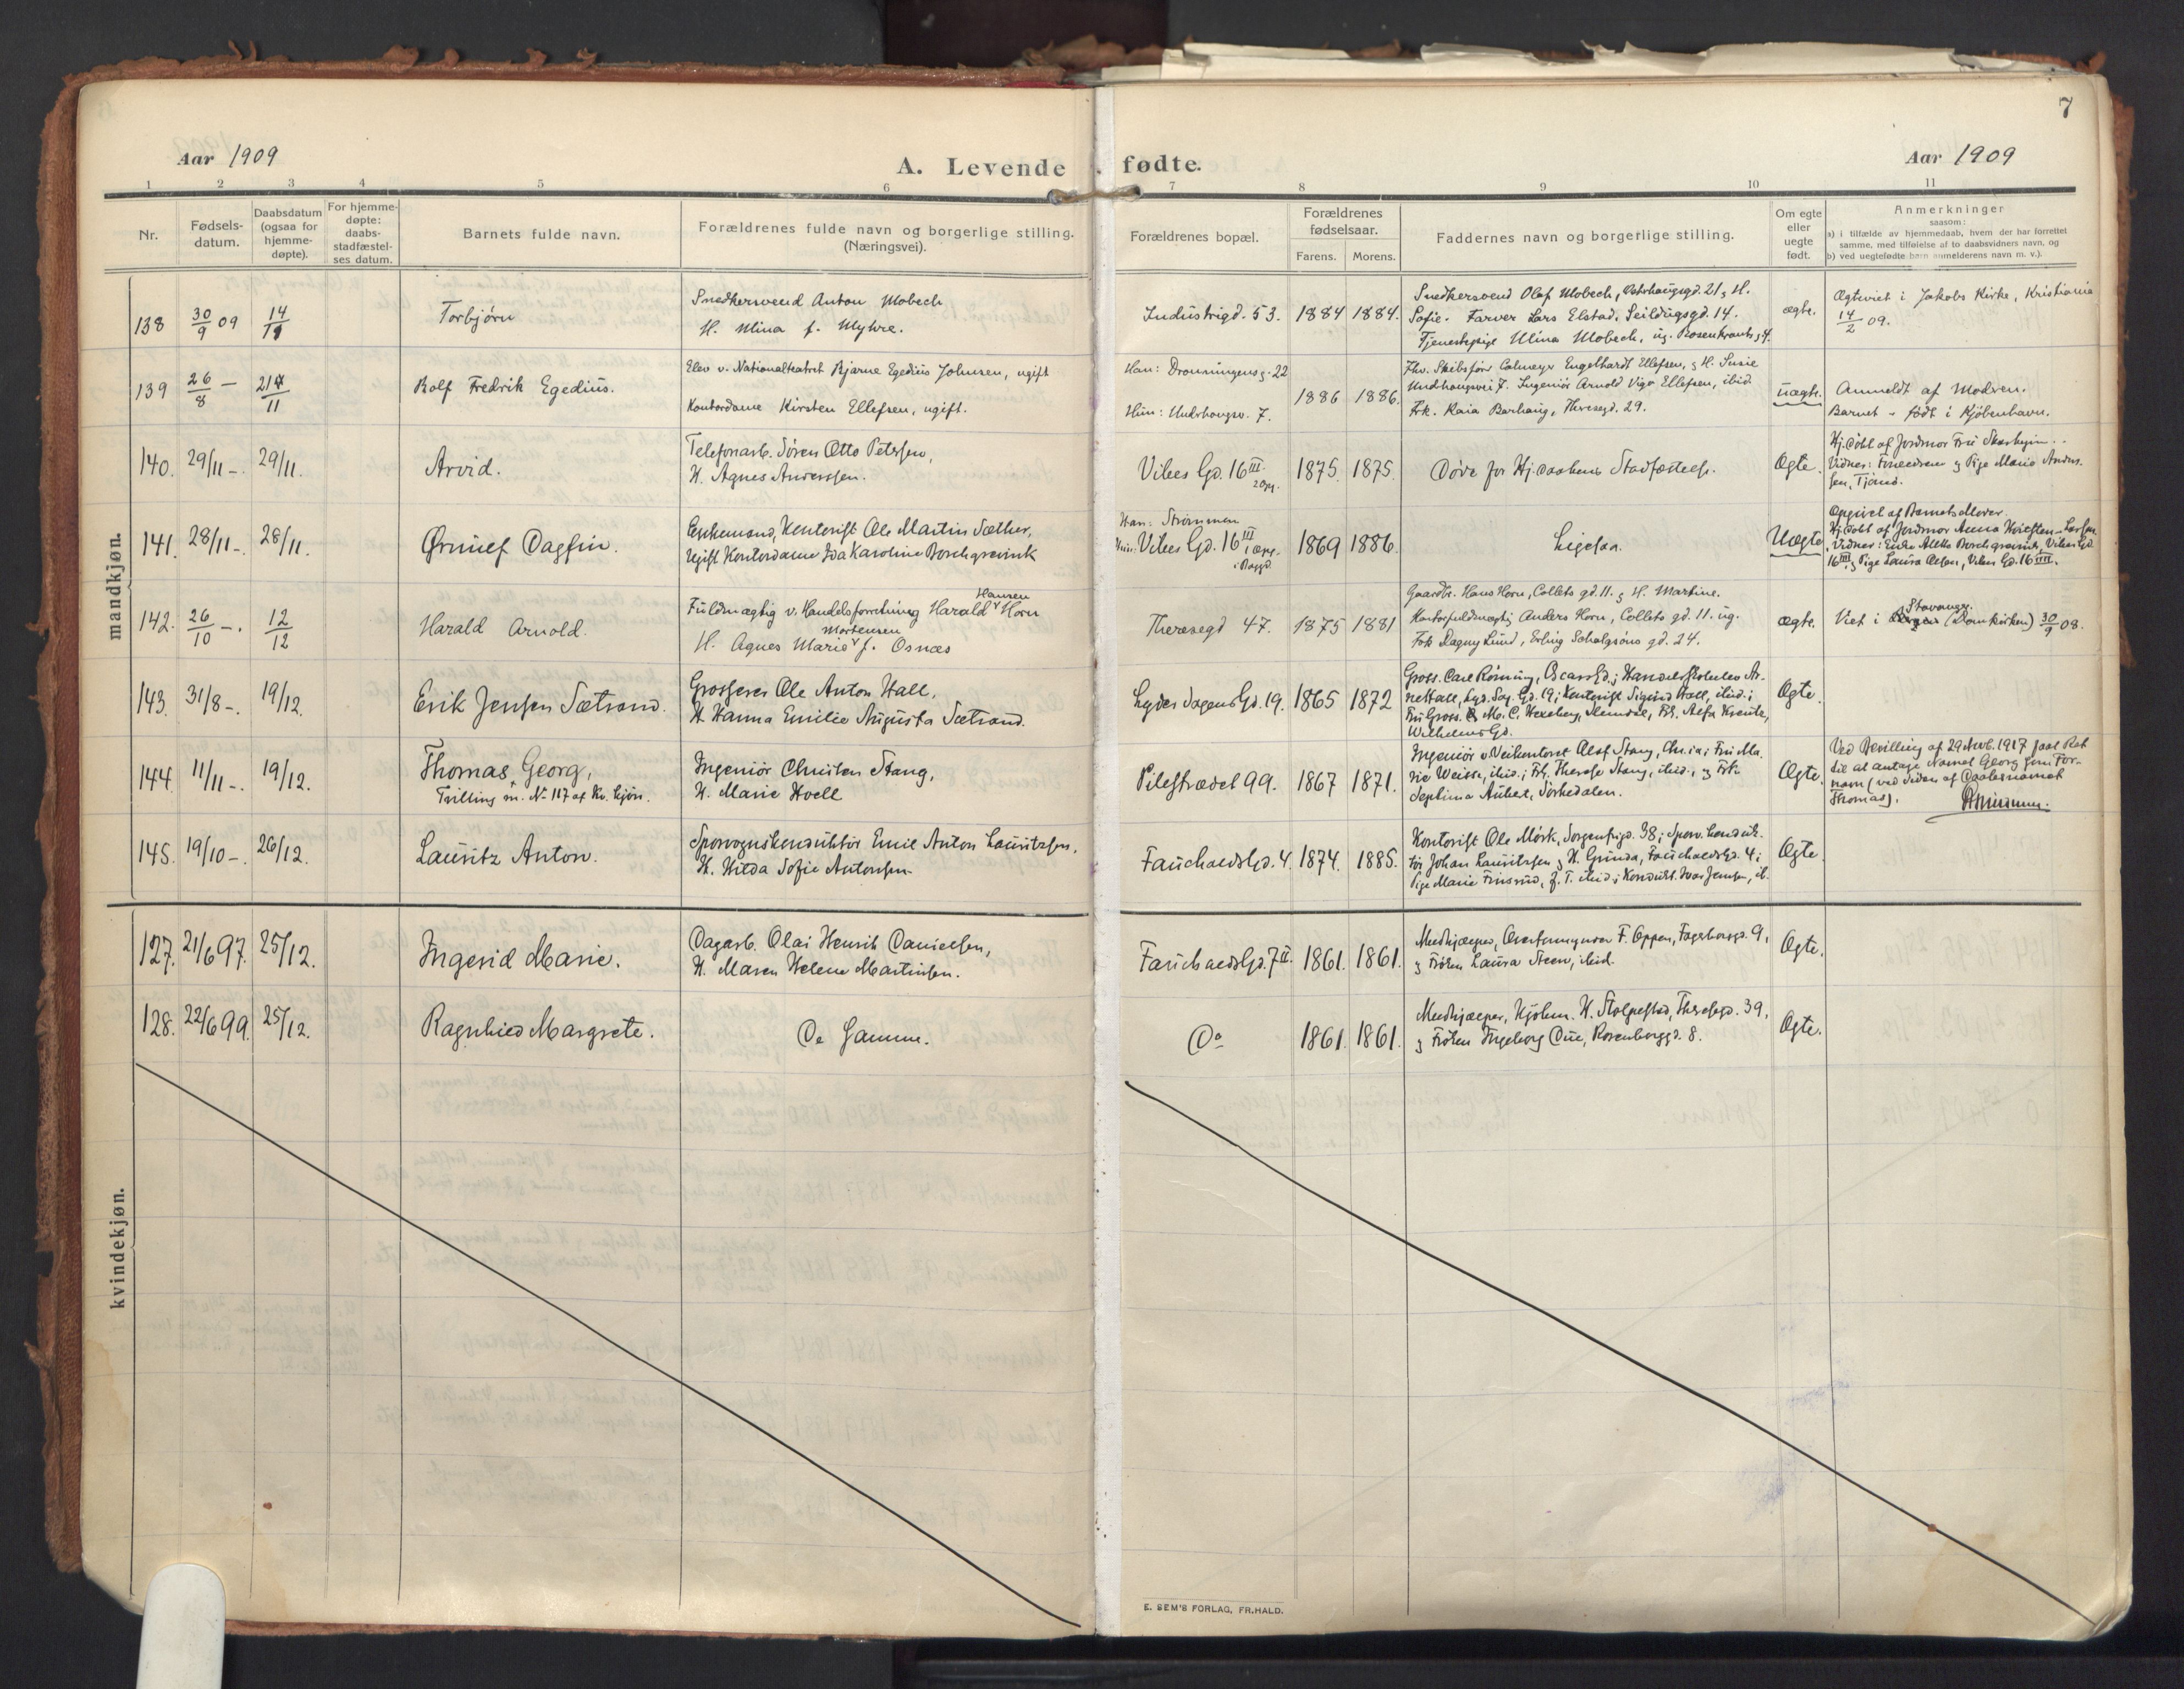 7
Aar 1909
A. Levende fødte.
Aar 1909
1 2 3 4 5 6 7 8 9 10 11
Nr.
Fødsels-
datum.
Daabsdatum
(ogsaa for
hjemme-
døpte).
For hjemme-
døpte:
daabs-
stadfæstel-
ses datum.
Barnets fulde navn.
Forældrenes fulde navn og borgerlige stilling.
(Næringsvei).
Forældrenes bopæl.
Forældrenes
fødselsaar.
Farens. Morens.
Faddernes navn og borgerlige stilling.
Om egte
eller
uegte
født.
Anmerkninger
saasom:
a) i tilfælde av hjemmedaab, hvem der har forrettet
samme, med tilføielse af to daabsvidners navn, og
b) ved uegtefødte barn anmelderens navn m. v.).
mandkjøn.
138 30/9 09 14/11
Torbjørn
Snedkersvend Anton Mobech
H. Mina f. Myhre.
Industrigd. 53. 1884 1884.
Snedkersvend Olaf Mobech, 21, H.
Sofie. Farver Lars Elstad, Seildugsgd. 14.
Tjenestepige Mina Mobech, ug. Rosenkrants g. 4.
ægte.
Ægteviet i Jakobs Kirke, Kristiania
14/2 09.
139 26/8 — 21/11
Rolf Fredrik Egedius.
Elev v. Nationalteatret Bjarne Egedius Johnsen, ugift
Kontordame Kirsten Ellefsen, ugift.
Han: Dronningens g. 22
Hun: Underhaugsv. 7.
1886 1886.
Fhv. Skibsfører Colmeyer Engelhardt Ellefsen, g H. Susie
Underhaugsvei 7. Ingeniør Arnold Vigo Ellefsen, ibid.
Frk. Kaia Barhaug, Theresegd. 29.
uægte.
Anmeldt af Modren.
Barnet født i Kjøbenhavn.
140. 29/11 -. 29/11.
Arvid.
Telefonarb. Søren Otto Petersen,
H. Agnes Anderssen.
Vibes Gd. 16 III.
2 Opg.
1875. 1875.
Døde før Hj.daabens Stadfæstelse.
Ægte.
Hj.døbt af Jordmor Fru
Vidner: Fruen g Pige Marie Anders-
sen, Tjend.
141. 28/11 -. 28/11.
Ørnulf Dagfin.
Enkemand, Kontorist Ole Martin Sæther,
Ugift Kontordame Ida Karoline Borchgrevink
Han: Strømmen
Hun: Vibes Gd. 16 III
1869 1886.
Ligesaa.
Uægte
Opgivet af Barnets Moder.
Hj.døbt af Jordmor Anna Larsen.
Vidner: Enke Aletta Borchgrevink, Vibes Gd.
16 III g Pige Laura Olsen, Vibes Gd. 16 III.
142. 26/10 -. 12/12
Harald Arnold.
Hansen
Fuldmægtig v. Handelsforretning Harald Horn
Mortensen
H. Agnes Marie f. Osnæs
Theresegd 47. 1875 1881
Gaardbr. Hans Horn, Collets gd. 11. g H. Martine.
Kontorfuldmægtig Anders Horn, Collets gd. 11. ug.
Frk Dagny Lund, Erling Schalgsøns gd. 24.
ægte.
Stavanger
Viet i Bergen (Domkirken) 30/9 08.
143. 31/8 -. 19/12.
Erik Jensen Sætrand.
Grosserer Ole Anton Hall,
H. Hanna Emilie Augusta Sætrand.
Lyder Sagens Gd. 19. 1865 1872
Gross. Carl Rönning, Oscars Gd.; Handelsskoleelev Ar-
ne Hall, Lyd. Sag. Gd. 19; Kontorist Sigurd Hall, ibid.;
Fru Gross. M. C. Hexeberg, Slemdal, Frk. Alfa Krentz,
Wilhelms Gd.
Ægte
144. 11/11 -. 19/12.
Thomas Georg,
Tvilling m. No 117 af Kv. kjön.
Ingeniör Christen Stang,
H. Marie Hoell
Pilestrædet 99. 1867 1871.
Ingeniör v. Veikontoret Olaf Stang, Chr.ia; Fru Ma-
rie Weisse, ibid.; Frk. Therese Stang, ibid., g Frk.
Septima Aubert, Sörkedalen.
Ægte.
Ved Bevilling af 29 Novb. 1917 faat Ret
til at antage Navnet Georg som For-
navn (ved Siden af Daabsnavnet
Thomas).
145. 19/10 -. 26/12.
Lauritz Anton.
Sporvognskonduktör Emil Anton Lauritzsen,
H. Hilda Sofie Antonsen
Fauchalds Gd. 4. 1874. 1885.
Kontorist Ole Mörk, Sorgenfrigd. 38; Sporv. konduk-
tör Johan Lauritzsen g H. Gunda, Fauchalds Gd. 4;
Pige Marie Finsrud, g. T. ibid; Kondukt. Ivar Jensen, ib.
Ægte.
kvindekjøn.
127. 21/6 97. 25/12.
Ingerid Marie.
Dagarb. Olai Henrik Danielsen,
H. Maren Helene Martinsen.
Fauchalds Gd. 7 II. 1861. 1861.
Medhjælper, F. Oppen, Fagerborggd. 9,
g Fröken Laura Steen, ibid.
Ægte.
128. 22/6 99. 25/12.
Ragnhild Margrete.
De Samme.
Do 1861. 1861.
Medhjælper, Hjelm. H. Stolpestad, Theresegd. 39,
g Fröken Ingeborg Due, Rosenborggd. 8.
Ægte.
E. SEM'S FORLAG, FR.HALD.